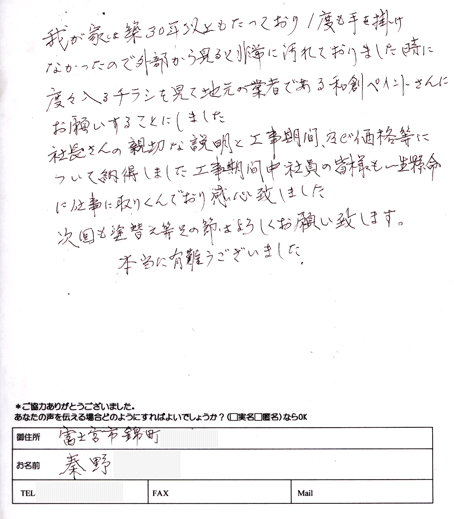 我が家は築30年以上もたっており1度も手を掛け
なかったので外部から見ると非常に汚れておりました時に
度々入るチラシを見て地元の業者である和創ペイントさんに
お願いすることにしました
社長さんの親切な説明と工事期間、及び価格等に
ついて納得しました工事期間中社員の皆様も一生懸命
に仕事に取りくんでおり感心致しました
次回も塗替え等その節はよろしくお願い致します。
本当に有難うございました
*ご協力ありがとうございました。
あなたの声を伝える場合どのようにすればよいでしょうか?(□実名□匿名)ならOK
御住所 富士宮市錦町
お名前 秦野
TEL FAX Mail